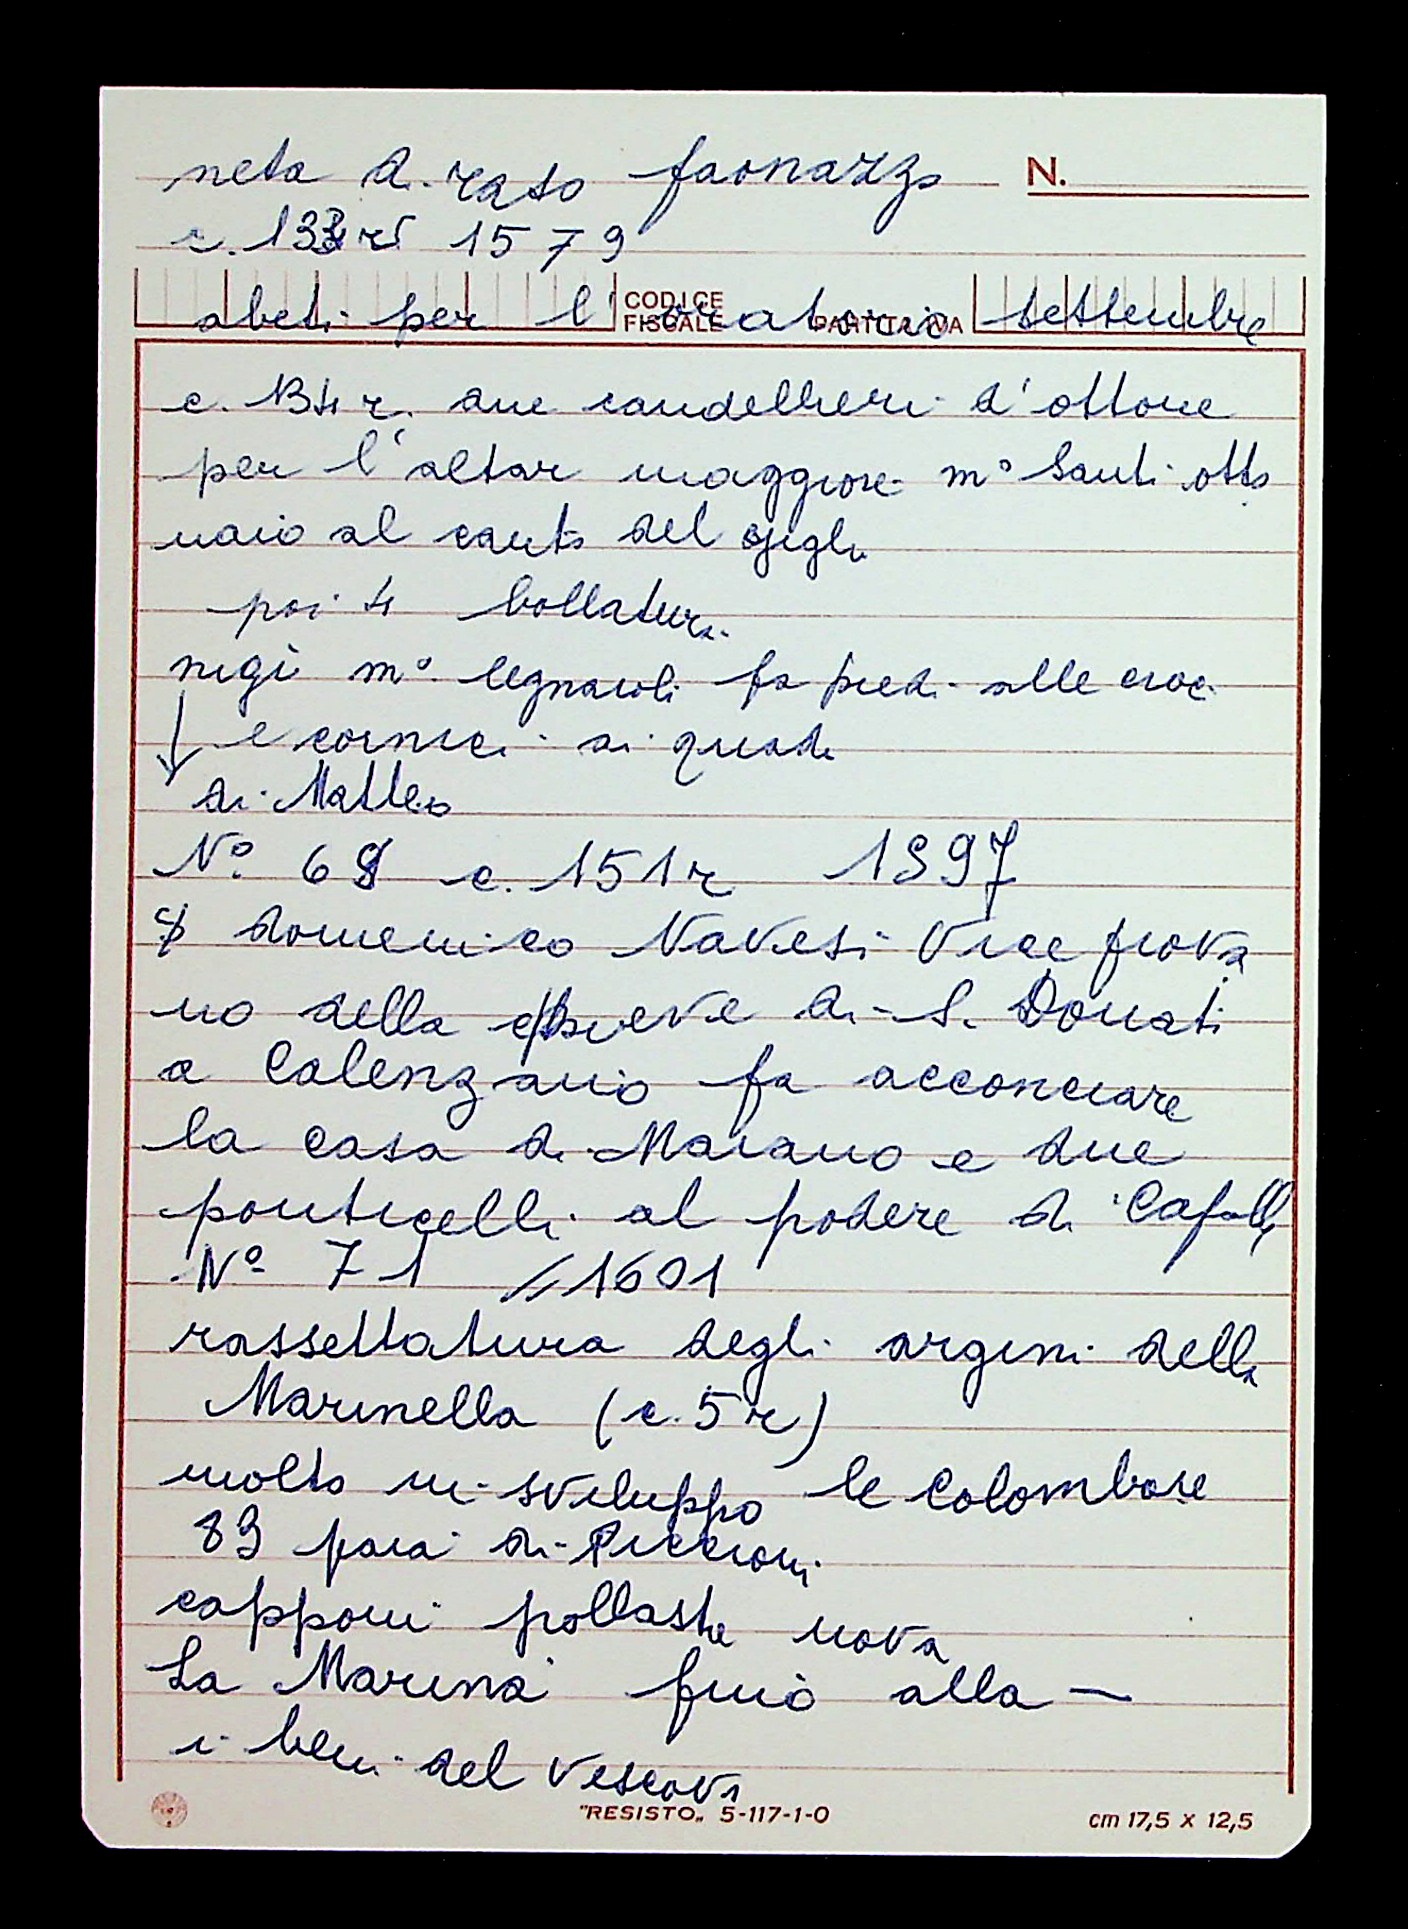 neta di raso faonazzo
N.
c. 133 r 1579
CODICE FISCALE PARTITA IVA
abeti per l'oratorio settembre
c. 134 r. due candellieri d'ottone
per l'altar maggiore m° Santi otto
naio al canto del giglio
poi 4 bollature
nigi m° legnaioli fa piedi alle croci
↓ e cornici di quadri
di Matteo
N° 68 c. 151 r 1597
domenico Navesi Vice piova
no della pieve di S. Donati
a Calenzano fa acconciare
la casa di Maiano e due
ponticelli al podere di Cafaggio
N° 71 1601
rassettatura degli argini della
Marinella (c. 5 r)
molto in sviluppo le Colombaie
83 paia di Piccioni
capponi pollastre uova
La Marina finiò alla —
i beni del Vescovo
"RESISTO" 5-117-1-0
cm 17,5 x 12,5